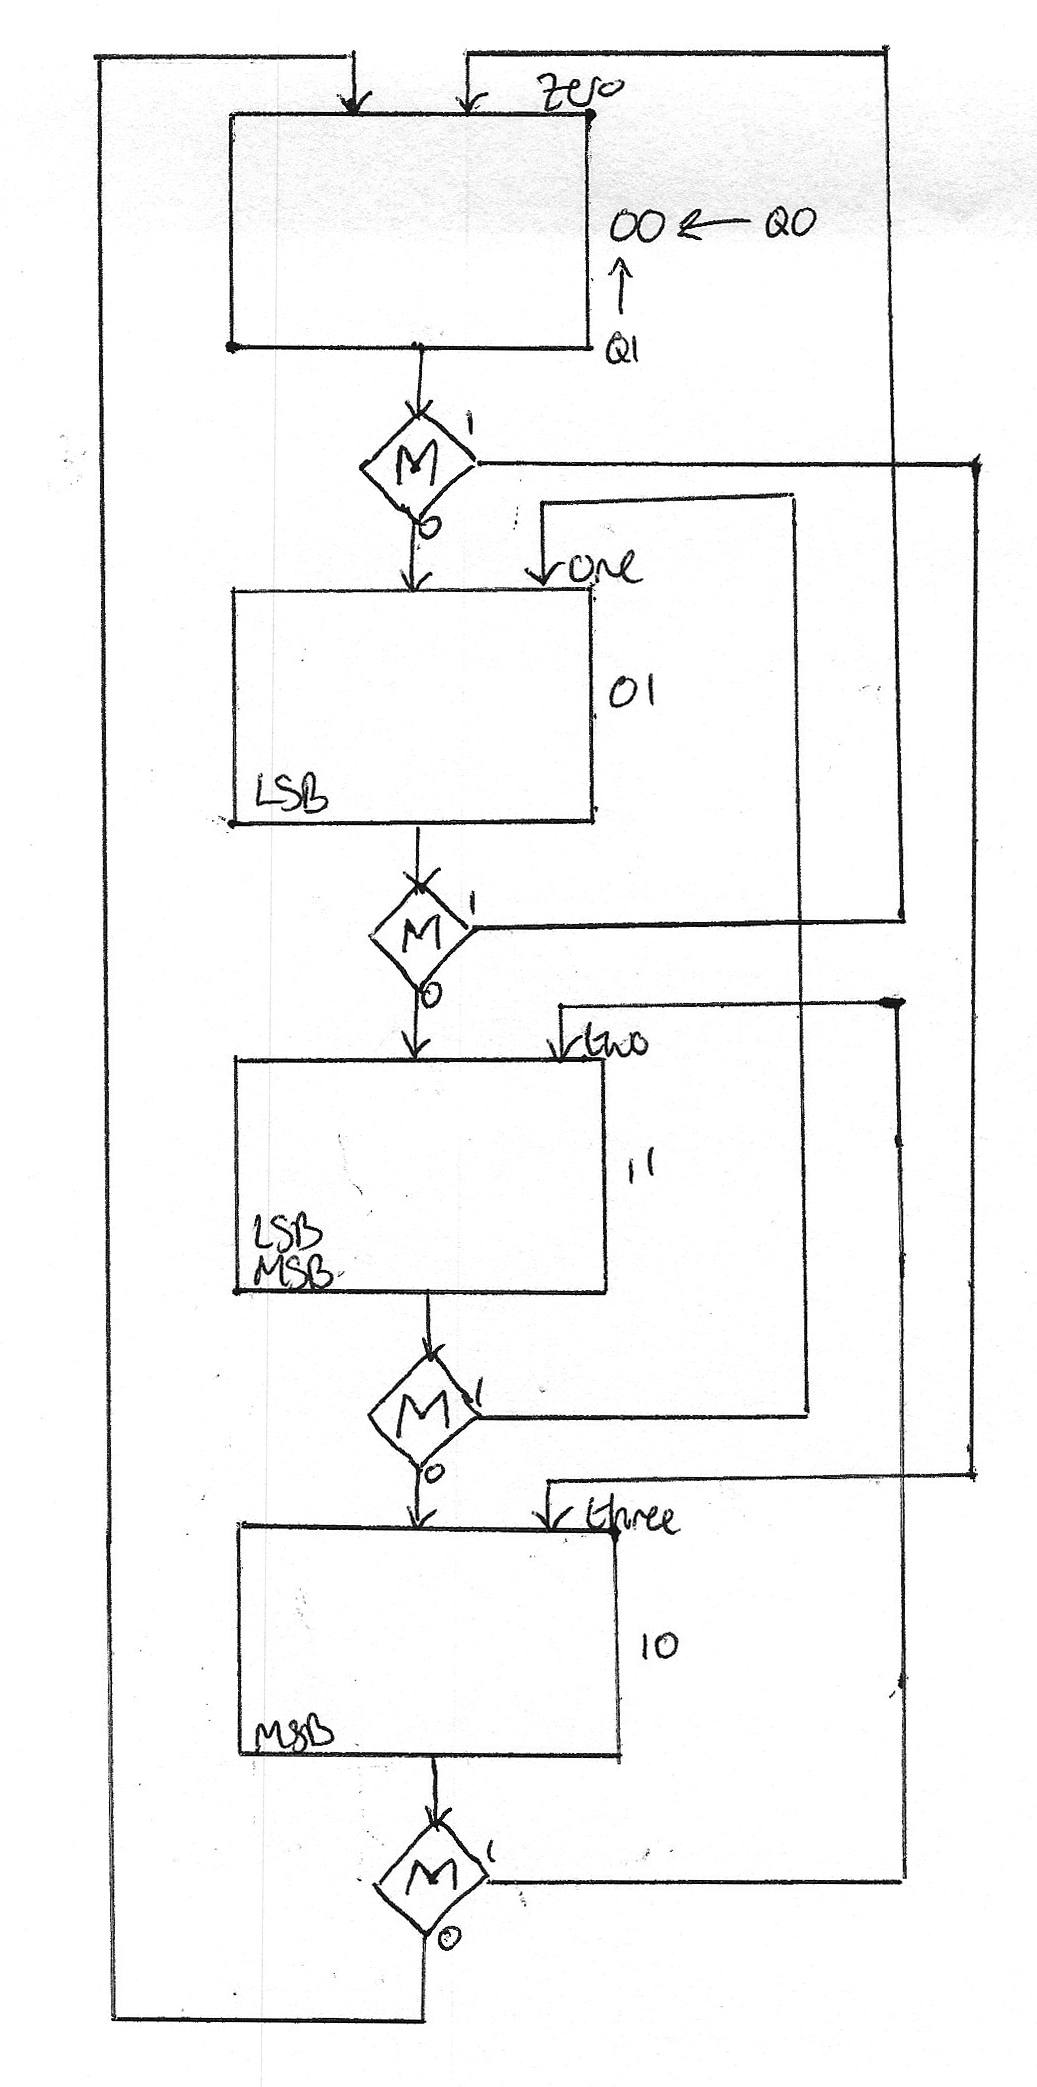 zero
00 ← Q0
↑
Q1
1
M
0
one
01
LSB
1
M
0
two
11
LSB
MSB
1
M
0
three
10
MSB
1
M
0